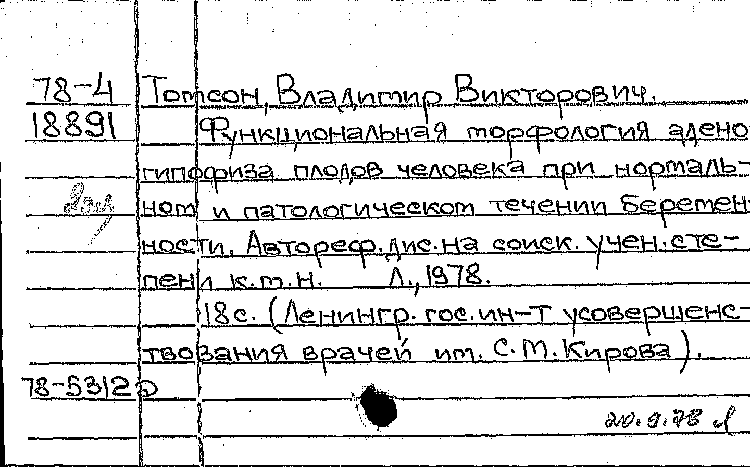 78-4 Томсон, Владимир Викторович.
18891 Функциональная морфология адено
гипофиза плодов человека при нормаль-
ном и патологическом течении беремен-
ности. Автореф. дис. на соиск. учен. сте-
пени к.м.н. Л., 1978.
18с. (Ленингр. гос. ин-т усовершенс-
твования врачей им. С.М.Кирова).
78-5312
20.9.78